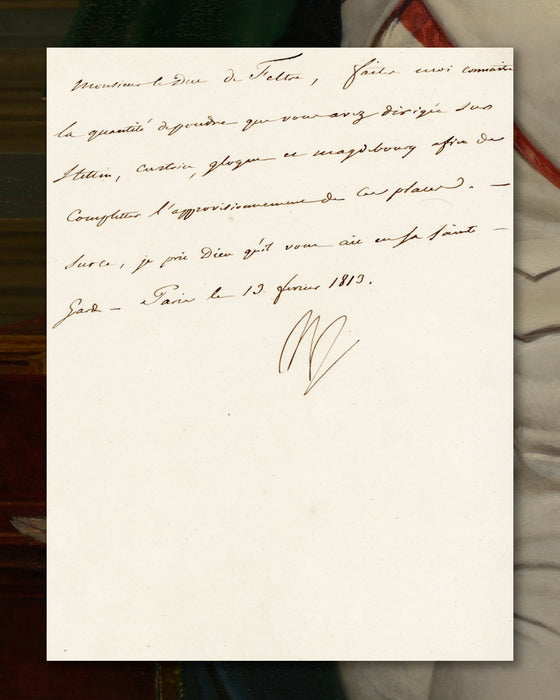 Monsieur le Duc de Feltre, faites moi connaitre
la quantité de poudre que vous avez dirigée sur
Stettin, custrin, glogau et magdebourg afin de
completter l'approvisionnement de ces places. —
sur ce, je prie Dieu qu'il vous ait en sa sainte
Garde — Paris le 13 fevrier 1813.